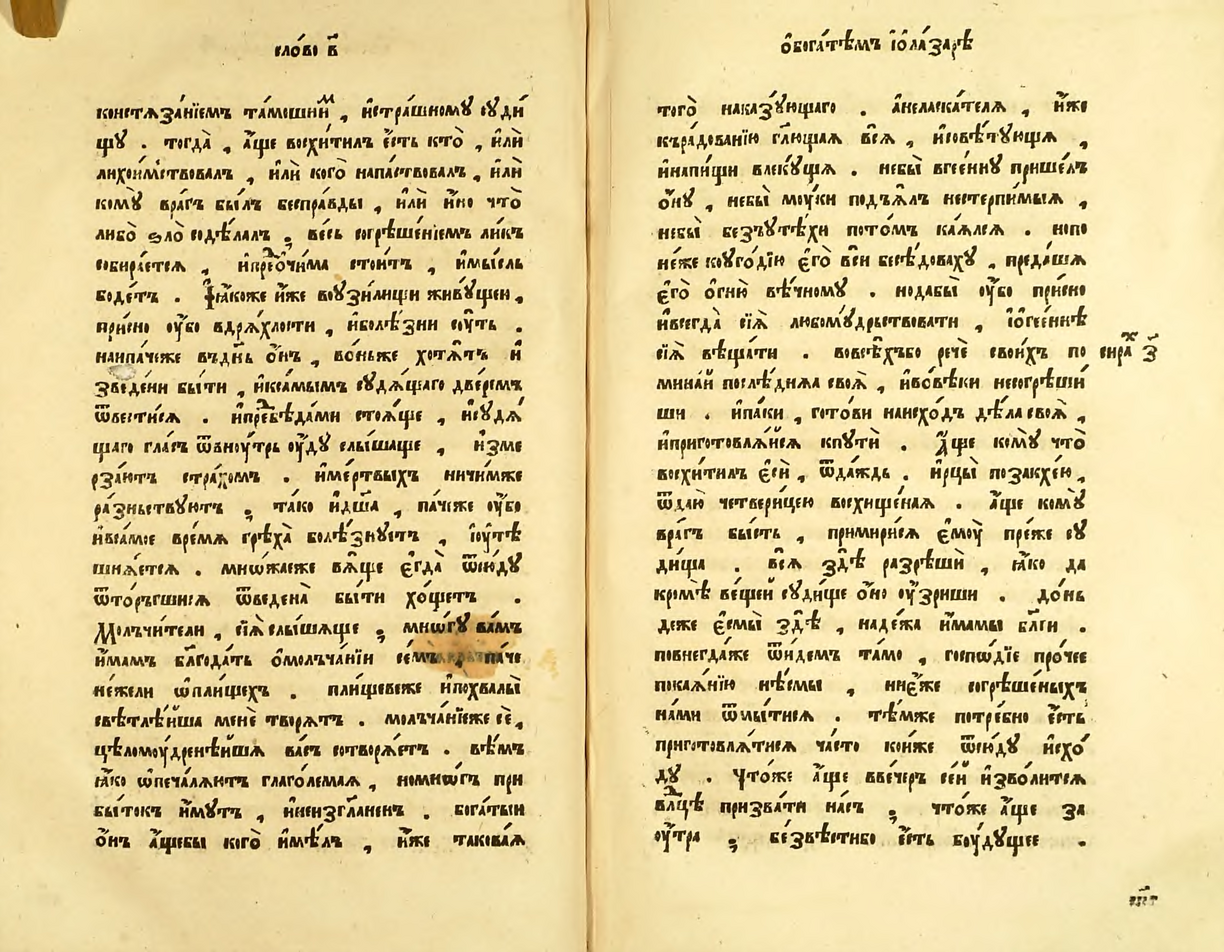 сло́во в҃
констѧза́нїємъ та́мошнимъ , истра́шномꙋ сꙋди́
щꙋ . тогда̀ , а҆́ще восхи́тилъ є҆́сть кто̀ , и҆лѝ
лихои́мствовалъ , и҆лѝ кого̀ напа́ствовалъ , и҆лѝ
комꙋ̀ вра́гъ бы́лъ беспра́вды , и҆лѝ и҆́но что̀
либо̀ ѕло̀ содѣ́лалъ ; ве́сь согрѣше́нїємъ ли́къ
собира́єтсѧ , и҆пред̾о́чима стои́тъ , и҆мы́сль
боде́тъ . ꙗ҆́коже и҆́же воꙋзи́лищи живꙋ́щєи ,
при́сно оу҆́бо вдрѧ́хлости , и҆болѣ́зни сꙋ́ть .
наипа́чеже въдн҃ь о҆́нъ , во́ньже хотѧ́тъ и
зведе́ни бы́ти , и҆ксамы́мъ сꙋдѧ́щаго две́ремъ
ѿвести́сѧ . и҆пред̾бѣда́ми стоѧ́ще , и҆сꙋдѧ́
щаго гла́съ ѿвноу́трь оу҆́дꙋ слы́шаще , и҆зме
рза́ютъ стра́хомъ . и҆ме́ртвыхъ ничи́мже
ра́зньствꙋютъ ; та́ко и҆дш҃а̀ , па́чеже оу҆́бо
и҆вса́моє вре́мѧ грѣха̀ болѣ́знꙋєтъ , і҆оу҆тѣ
снѧ́єтсѧ . мно́жаєже вѧ́ще є҆гда̀ ѿсю́дꙋ
ѿто́ргшисѧ ѿведена̀ бы́ти хо́щетъ .
Молъчи́тєли , сїѧ̀ слы́шѧще ; мно́гꙋ ва́мъ
и҆́мамъ бл҃года́ть о҆молъча́нїи се́мъ , па́че
не́жели ѡ҆плища́хъ . пли́щевеже и҆похвалы̀
свѣтлѣ́йша менѐ творѧ́тъ . молъча́нїєже сѐ ,
цѣломоу́дренѣйшѧ ва́съ сотворѧ́єтъ . вѣ́мъ
ꙗ҆́ко ѡ҆печалѧ́ютъ глаго́лемаѧ , номно́гъ при
бы́токъ и҆́мꙋтъ , и҆неизгл҃аненъ . бога́тыи
о҆́нъ а҆́щебы кого̀ и҆мѣ́лъ , и҆́же такова́ѧ
ѻ҆бога́тѣмъ і҆ѻ҆ла́зарѣ
того̀ наказꙋ́ющаго . анеласка́телѧ , и҆́же
къра́дованїю гл҃ющаѧ всѧ̀ , и҆совѣ́тꙋющѧ ,
и҆напи́щи влекꙋ́щѧ . небы̀ вгее́ннꙋ прише́лъ
о҆́нꙋ , небы̀ моу́ки подъѧ́лъ нестерпи́мыѧ ,
небы̀ безꙋтѣ́хи пото́мъ ка́ѧлсѧ . нопо
не́же коуго́дїю є҆гѡ̀ всѝ бесѣ́доваху , преда́шѧ
є҆го̀ о҆гню̀ вѣ́чномꙋ . нодабы̀ оу҆́бо при́сно
и҆всегда̀ сїѧ̀ любомꙋ́дрьствовати , і҆ѻ҆гее́ннѣ
сїѧ̀ вѣща́ти . вовсѣ́хъбо речѐ свои́хъ по
сира́х з҃
мина́й послѣ́днѧѧ своѧ̀ , и҆во́вѣки несогрѣши́
ши . и҆па́ки , гото́ви наисхо́дъ дѣла̀ своѧ̀ ,
и҆приготовлѧ́йсѧ кпутѝ . А҆́ще комꙋ̀ что̀
восхи́тилъ є҆сѝ , ѿда́ждь . и҆рцы̀ позакхе́ю ,
ѿдаю̀ четвери́цею восхище́наѧ . а҆́ще комꙋ̀
вра́гъ бы́сть , примири́сѧ є҆моу̀ пре́же сꙋ
ди́ща . всѧ̀ здѣ̀ разрѣшѝ , ꙗ҆́ко да
кромѣ̀ веще́й сꙋди́ще о҆́но оу҆́зриши . до́нь
деже є҆смы̀ здѣ̀ , наде́жа и҆́мамы бл҃ги .
повнегда́же ѿи́демъ та́мо , госпо́дїе про́чеє
покаѧ́нїю нѣ́смы , ниє҆́же согрѣше́ныхъ
на́ми ѿмы́тисѧ . тѣ́мже потре́бно є҆́сть
приготовлѧ́тисѧ ча́сто коиже ѿсю́дꙋ и҆схо́
дꙋ . Что́же а҆́ще вве́черъ се́й и҆зво́литсѧ
влⷣцѣ призва́ти на́съ ; что́же а҆́ще за
оу́тра ; безвѣ́стнбо є҆́сть боу́дꙋщеє .